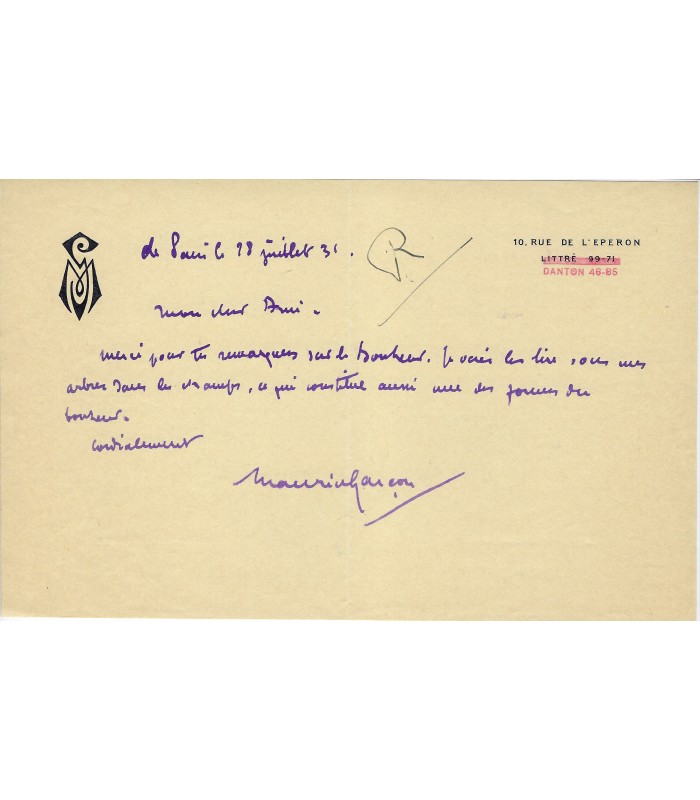 10, RUE DE L'EPERON
LITTRÉ 99-71
DANTON 46-85
de Paris le 28 juillet 31.
R
Mon cher Ami.
Merci pour tes remarques sur le Bonheur. Je vais les lire sous mes
arbres dans les champs, ce qui constitue aussi une des formes du
bonheur.
Cordialement
Maurice Garçon